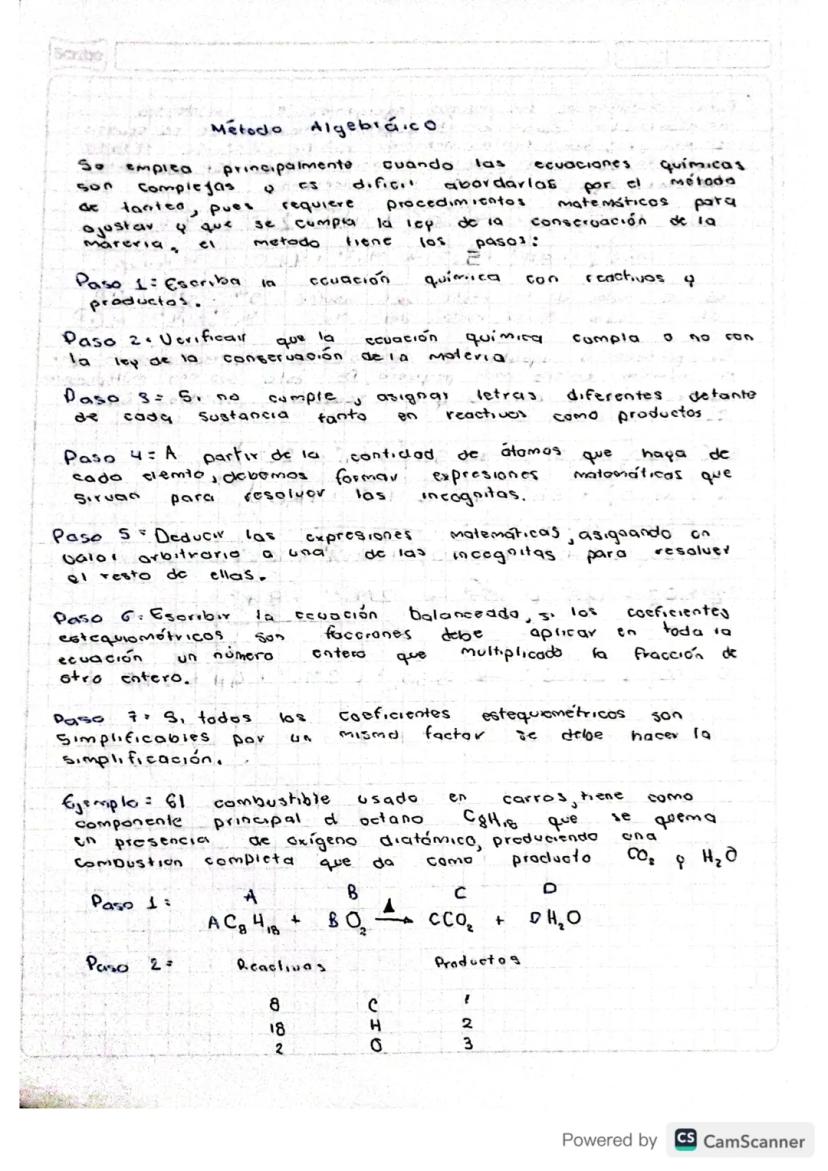 Scribe
Método Algebráico
Se emplea principalmente cuando las ecuaciones químicas
son complejas y es dificil abordarlas por el método
de tanteo, pues requiere procedimientos matemáticos para
ajustar y que se cumpla la ley de la conservación de la
materia, el metodo tiene los pasos:
Paso 1: Escriba la ecuación química con reactivos y
productos.
Paso 2: Verificar que la ecuación química cumpla o no con
la ley de la conservación de la materia
Paso 3: Si no cumple, asignar letras diferentes delante
de cada sustancia tanto en reactivos como productos
Paso 4: A partir de la cantidad de átomos que haya de
cada elemto, debemos formar expresiones matemáticas que
sirvan para resolver las incognitas.
Paso 5: Deducir las expresiones matemáticas, asignando un
valor arbitrario a una de las incognitas para resolver
el resto de ellas.
Paso 6: Escribir la ecuación balanceada, si los coeficientes
estequiométricos son facciones debe aplicar en toda la
ecuación un número entero que multiplicado la fracción de
otro entero.
Paso 7: Si todos los coeficientes estequiométricos son
simplificables por un mismo factor se debe hacer la
simplificación.
Ejemplo: El combustible usado en carros, tiene como
componente principal el octano C₈H₁₈ que se quema
en presencia de oxígeno diatómico, produciendo una
combustion completa que da como producto CO₂ y H₂O
Paso 1: A B C D
AC₈H₁₈ + BO₂ Δ→ CCO₂ + DH₂O
Paso 2: Reactivos Productos
8 C 1
18 H 2
2 O 3
Powered by CS CamScanner